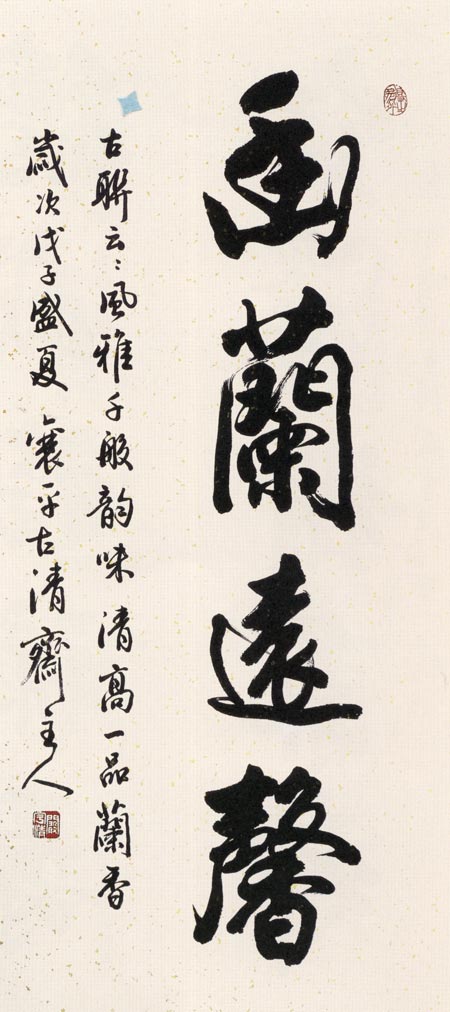 幽蘭遠馨
古聯云：風雅千般韵味清高一品蘭香
歲次戊子盛夏 襄平古清齋主人